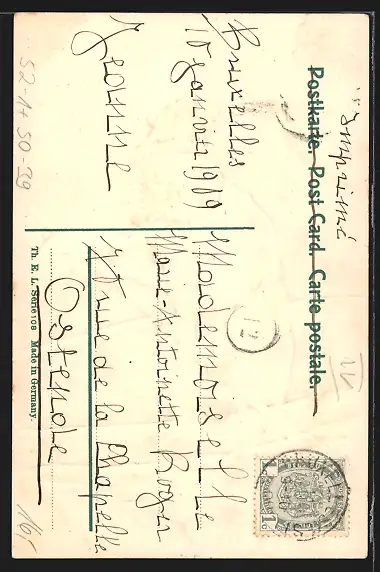 "Imprimé
Postkarte. Post Card. Carte postale.
Bruxelles
10 janvier 1909
Jeanne
Mademoiselle
Marie-Antoinette Roger
rue de la Chapelle
Ostende
12
Th. E. L. Serie 108 Made in Germany.
52-1+50-39
16,-